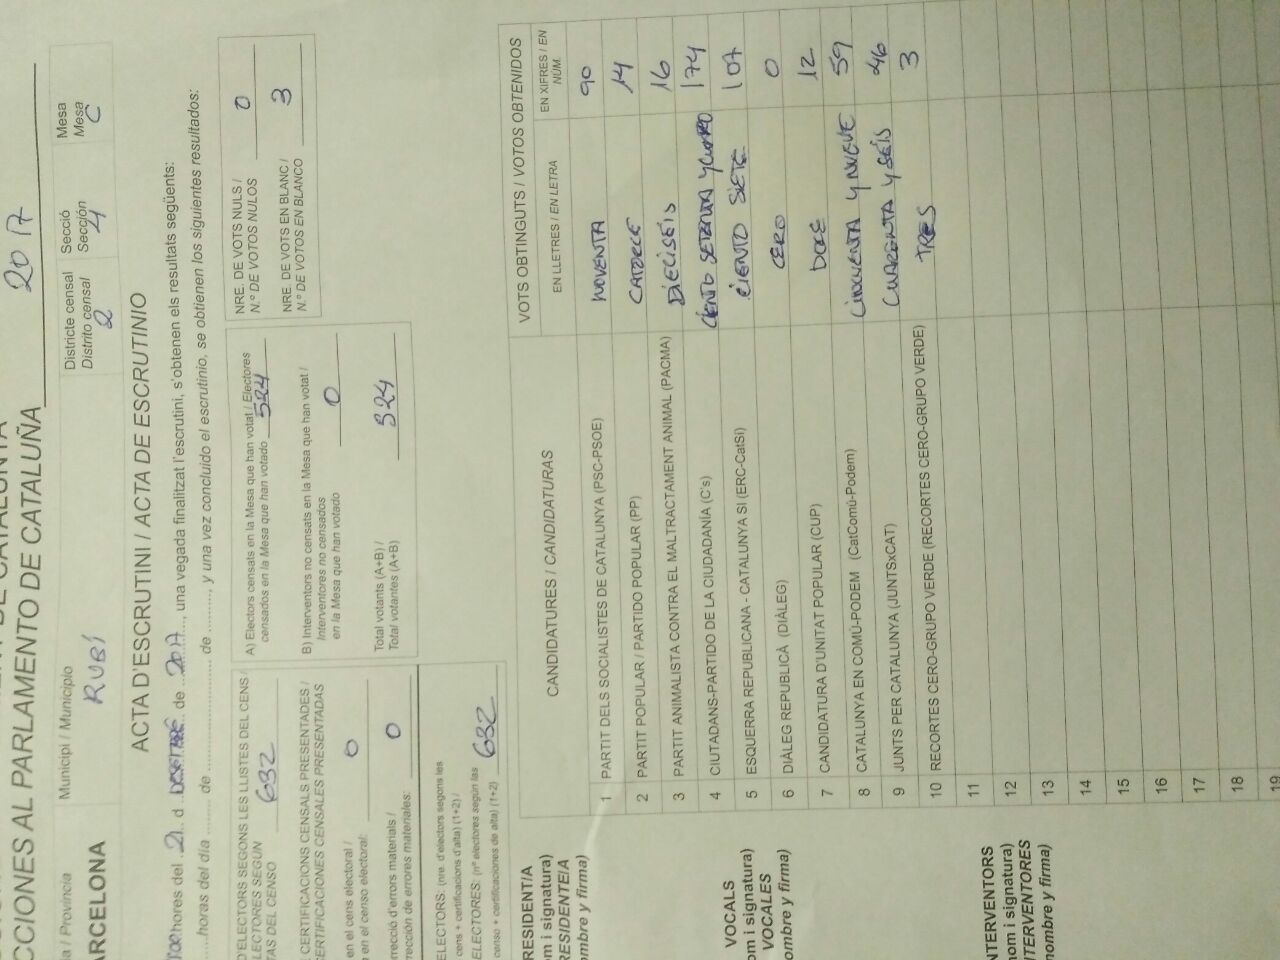 CCIONES AL PARLAMENTO DE CATALUÑA 2017
a / Provincia
ARCELONA
Municipi / Municipio
RUBÍ
Districte censal
Distrito censal
2
Secció
Sección
4
Mesa
Mesa
C
ACTA D'ESCRUTINI / ACTA DE ESCRUTINIO
hores del 21 d de 2017, una vegada finalitzat l'escrutini, s'obtenen els resultats següents:
horas del día de de , y una vez concluido el escrutinio, se obtienen los siguientes resultados:
D'ELECTORS SEGONS LES LLISTES DEL CENS /
LECTORES SEGÚN
TAS DEL CENSO 632
CERTIFICACIONS CENSALS PRESENTADES /
CERTIFICACIONES CENSALES PRESENTADAS
en el cens electoral /
en el censo electoral: 0
rrecció d'errors materials /
rección de errores materiales: 0
ELECTORS: (nre. d'electors segons les
cens + certificacions d'alta) (1+2) /
ELECTORES: (nº electores según las
censo + certificaciones de alta) (1+2) 632
A) Electors censats en la Mesa que han votat / Electores
censados en la Mesa que han votado 524
B) Interventors no censats en la Mesa que han votat /
Interventores no censados
en la Mesa que han votado 0
Total votants (A+B) /
Total votantes (A+B) 524
NRE. DE VOTS NULS /
N.º DE VOTOS NULOS 0
NRE. DE VOTS EN BLANC /
N.º DE VOTOS EN BLANCO 3
CANDIDATURES / CANDIDATURAS
VOTS OBTINGUTS / VOTOS OBTENIDOS
EN LLETRES / EN LETRA
EN XIFRES / EN
NÚM.
1 PARTIT DELS SOCIALISTES DE CATALUNYA (PSC-PSOE) NOVENTA 90
2 PARTIT POPULAR / PARTIDO POPULAR (PP) CATORCE 14
3 PARTIT ANIMALISTA CONTRA EL MALTRACTAMENT ANIMAL (PACMA) DIECISÉIS 16
4 CIUTADANS-PARTIDO DE LA CIUDADANÍA (C's) CIENTO SETENTA Y CUATRO 174
5 ESQUERRA REPUBLICANA - CATALUNYA SI (ERC-CatSí) CIENTO SIETE 107
6 DIÀLEG REPUBLICÀ (DIÀLEG) CERO 0
7 CANDIDATURA D'UNITAT POPULAR (CUP) DOCE 12
8 CATALUNYA EN COMÚ-PODEM (CatComú-Podem) CINCUENTA Y NUEVE 59
9 JUNTS PER CATALUNYA (JUNTSxCAT) CUARENTA Y SEIS 46
10 RECORTES CERO-GRUPO VERDE (RECORTES CERO-GRUPO VERDE) TRES 3
11
12
13
14
15
16
17
18
19
RESIDENT/A
om i signatura)
RESIDENTE/A
ombre y firma)
VOCALS
om i signatura)
VOCALES
ombre y firma)
NTERVENTORS
nom i signatura)
NTERVENTORES
nombre y firma)